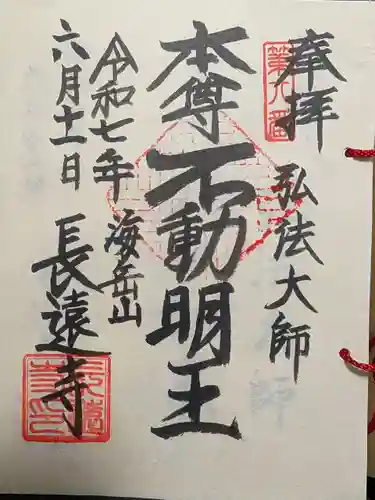 奉拝
第九番
弘法大師
本尊不動明王
海岳山
長遠寺
令和七年
六月十一日